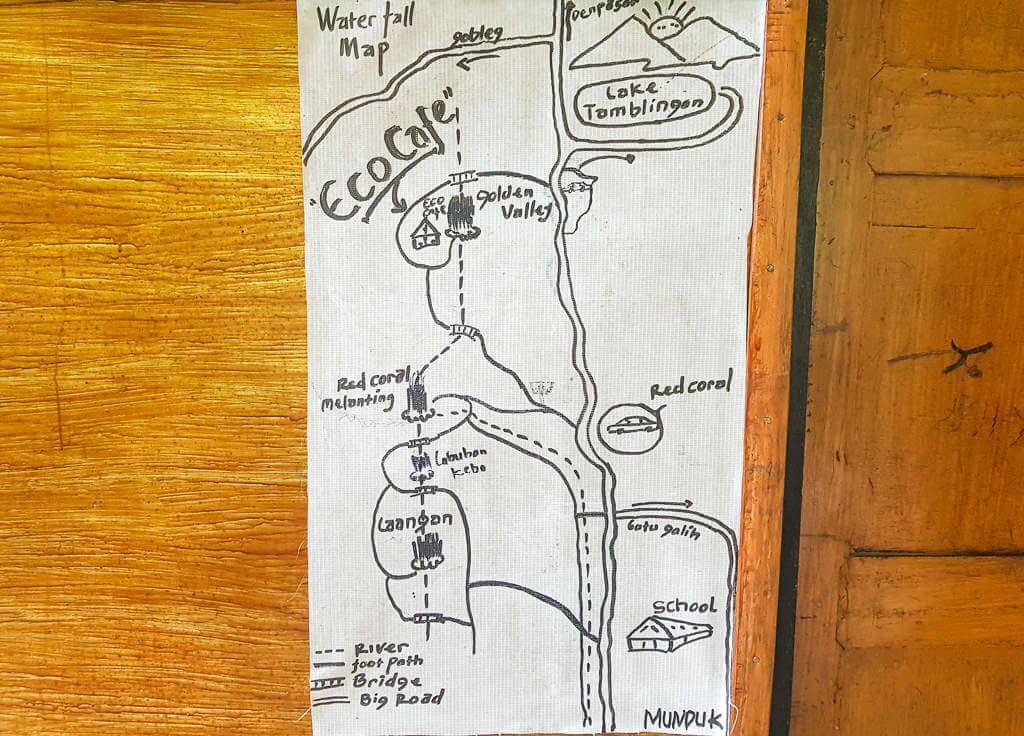 Waterfall
Map
gobleg
Denpasar
Lake
Tamblingan
"Eco Cafe"
ECO
CAFE
golden
Valley
Red coral
Melanting
Red coral
Labuhan
Kebo
Laangan
Gatu galih
SCHOOL
River
foot path
Bridge
Big Road
MUNDUK